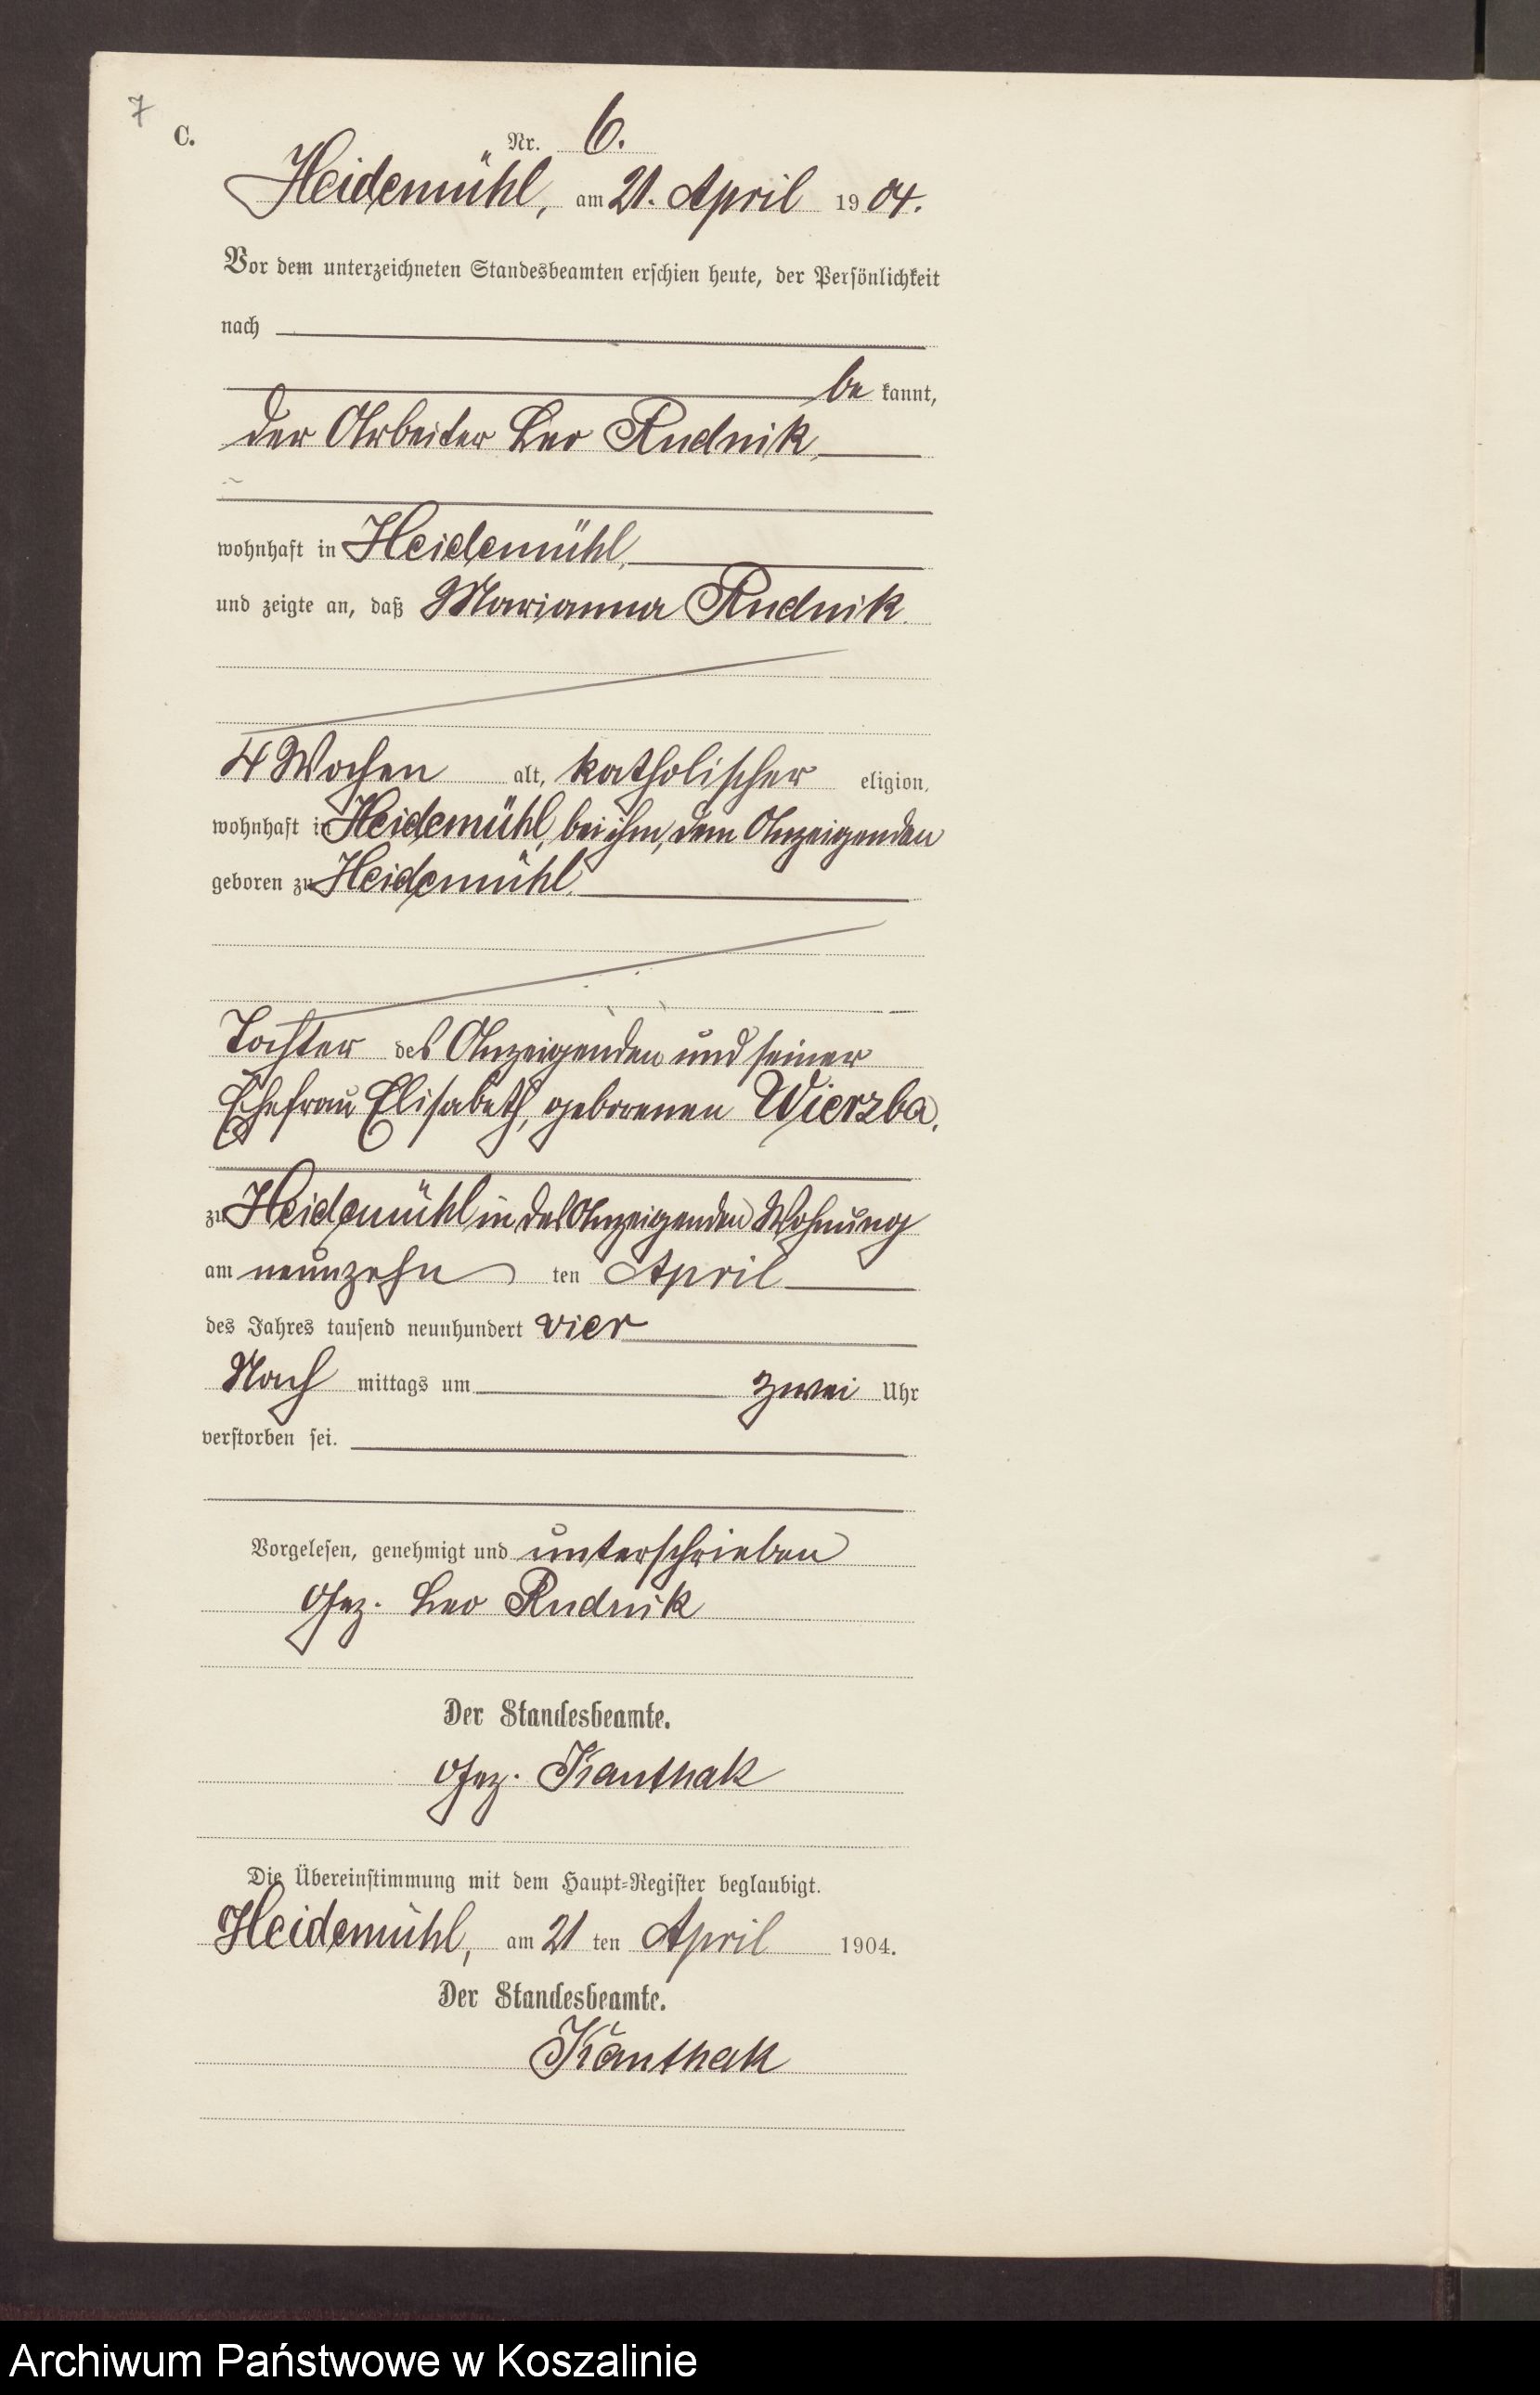 7
C.
Nr. 6.
Heidemühl, am 21. April 1904.
Vor dem unterzeichneten Standesbeamten erschien heute, der Persönlichkeit
nach
be kannt,
der Arbeiter Leo Rudnik,
wohnhaft in Heidemühl,
und zeigte an, daß Marianna Rudnik.
4 Wochen alt, katholischer eligion,
wohnhaft in Heidemühl, bei ihm, dem Anzeigenden
geboren zu Heidemühl,
Tochter des Anzeigenden und seiner
Ehefrau Elisabeth, geborenen Wierzba,
zu Heidemühl in des Anzeigenden Wohnung
am neunzehn ten April
des Jahres tausend neunhundert vier
Nach mittags um zwei Uhr
verstorben sei.
Vorgelesen, genehmigt und unterschrieben
Gez. Leo Rudnik
Der Standesbeamte.
Gez. Kanthak
Die Übereinstimmung mit dem Haupt-Register beglaubigt.
Heidemühl, am 21 ten April 1904.
Der Standesbeamte.
Kanthak
Archiwum Państwowe w Koszalinie